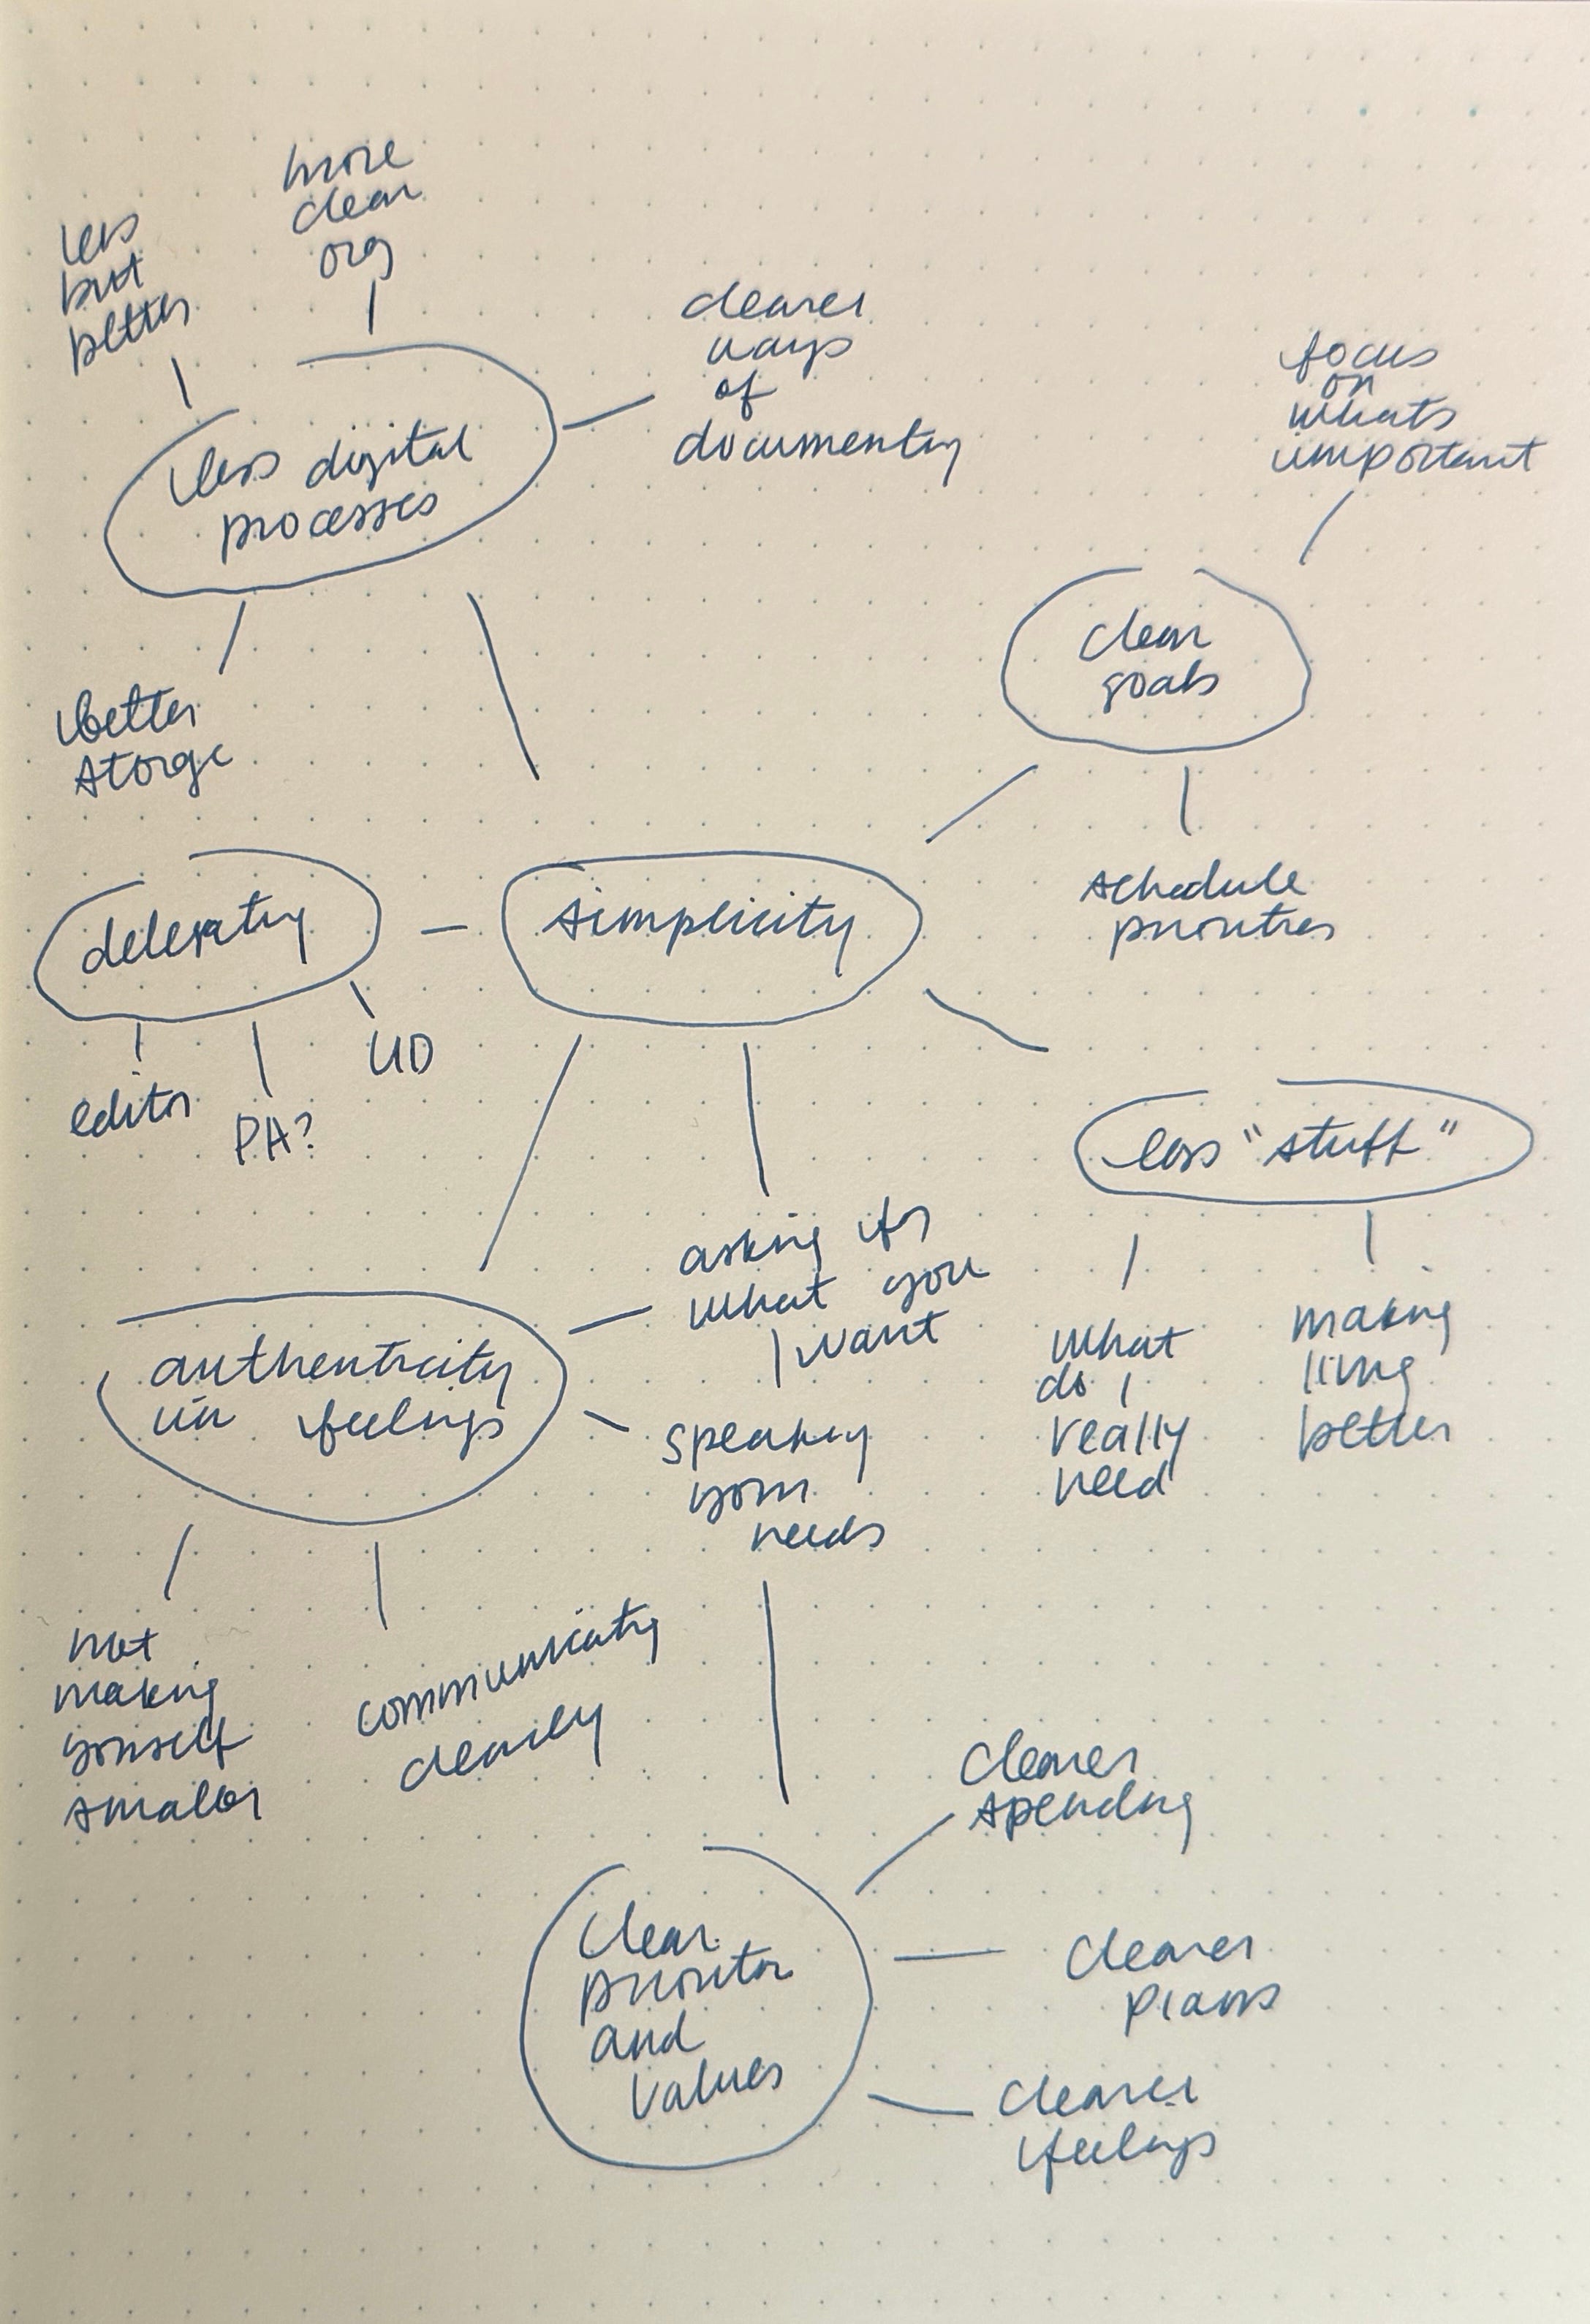 more
clear
org
less
but
better
clearer
ways
of
documenting
focus
on
whats
important
less digital
processes
clear
goals
better
storge
schedule
priorities
delegating
simplicity
editor
PA?
less "stuff"
asking for
what you
want
authenticity
in feelings
speaking
your
needs
what
do I
really
need
making
living
better
not
making
yourself
smaller
communicating
clearly
clearer
spending
clear
priorities
and
values
clearer
plans
clearer
feelings